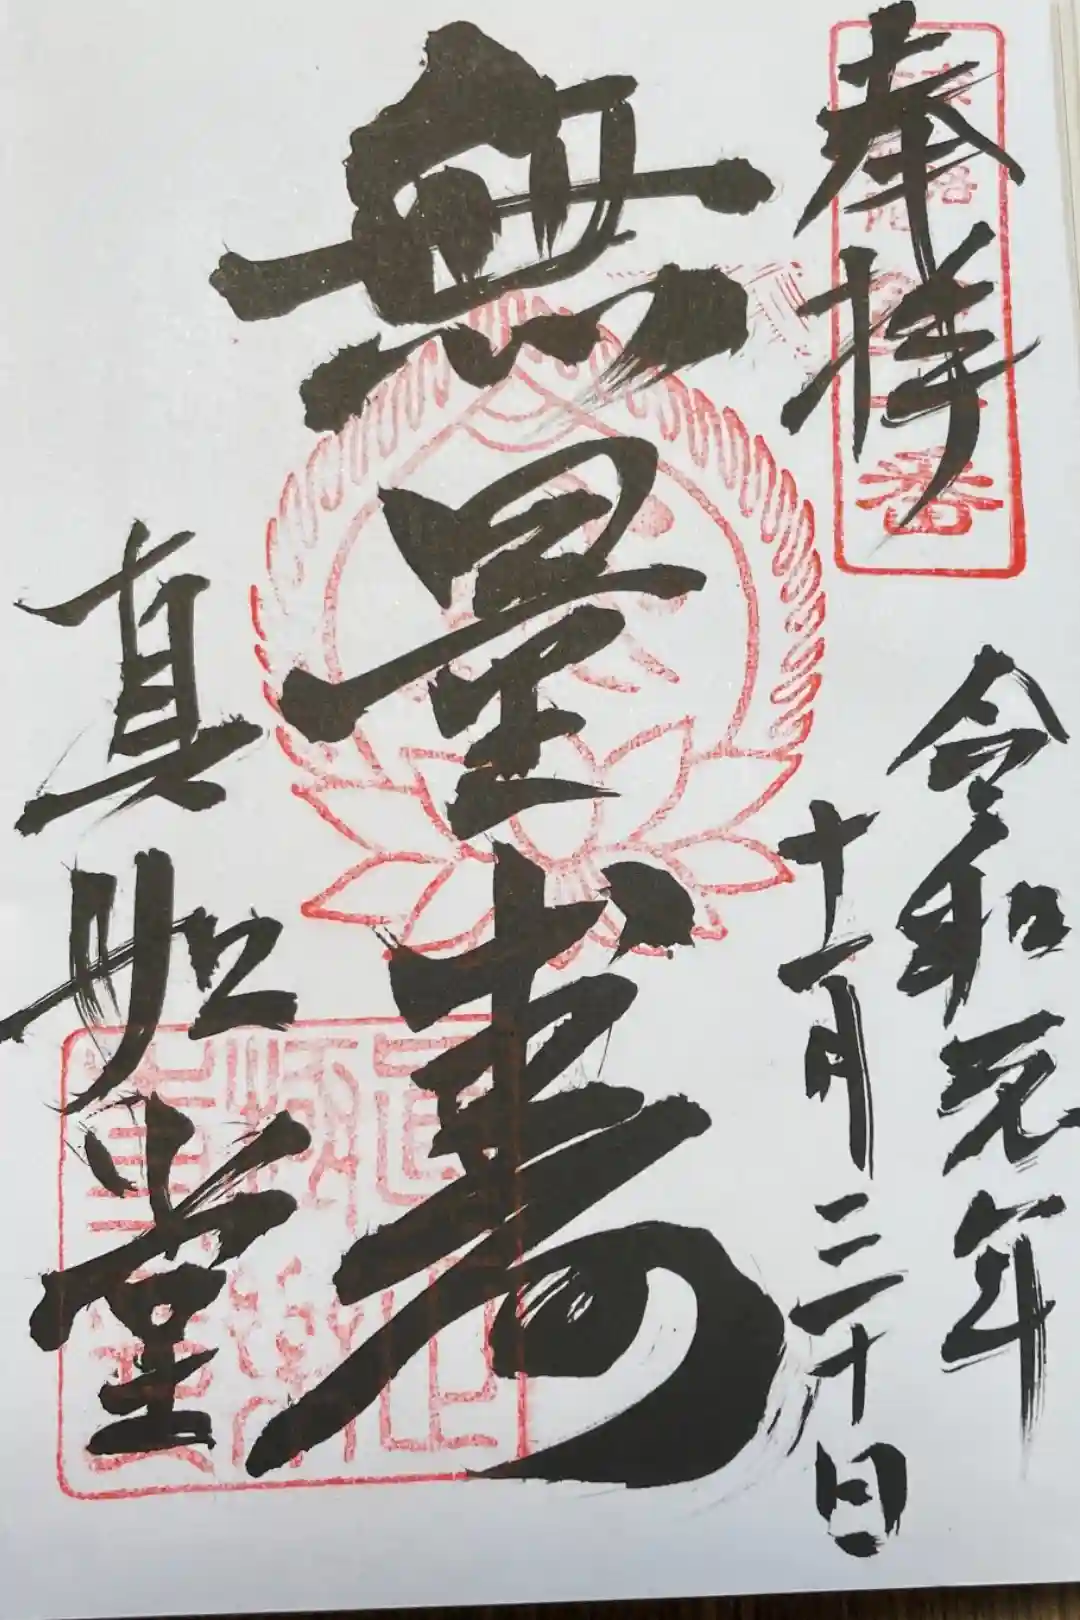 奉拝
令和元年
十一月二十日
無量寿
真如堂
番